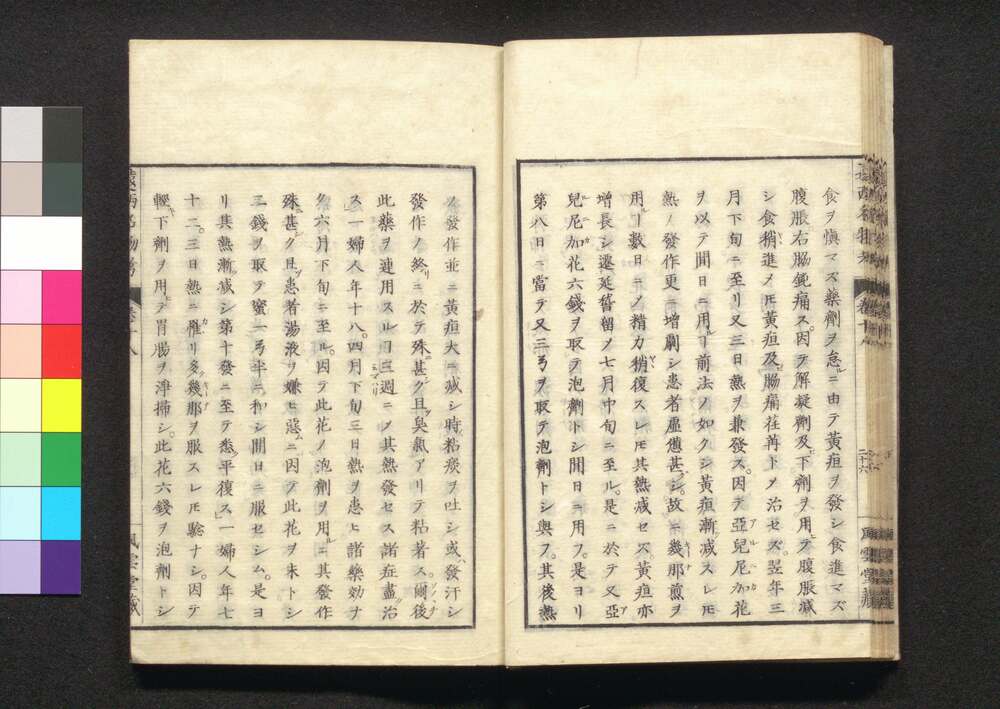 食ヲ愼マズ藥劑ヲ怠ルニ由テ黄疸ヲ發シ食進マズ
腹脹右脇鈍痛ス。因テ解凝劑及下劑ヲ用テ腹脹減
シ食稍進メ𪜈黄疸及腸痛荏苒トシテ治セズ。翌年三
月下旬ニ至リ又三日熱ヲ兼發ス。因テ亞兒尼加花
ヲ以テ間日ニ用ルヿ前法ノ如クシ黄疸漸減スレ𪜈
熱ノ發作更ニ增劇シ患者虛憊甚シ。故ニ幾那煎ヲ
用ルヿ數日ニシテ精力稍復スレ𪜈其熱減セズ。黄疸亦
增長シ遷延畱シテ七月中旬ニ至ル。是ニ於テ又亞
兒尼加花六錢ヲ取テ泡劑トシ間日ニ用フ。是ヨリ
第八日ニ當テ又三弓ヲ取テ泡劑トシ與フ。其後熱
ノ發作並ニ黄疸大ニ減シ時粘痰ヲ吐シ或ハ發汗シ
發作ノ終リニ於テ殊ニ甚シク且臭氣アリテ粘著ス。爾後
此藥ヲ連用スルヿ三週ニシテ其熱發セス諸症盡治
ス」一婦人年十八。四月下旬三日熱ヲ患ヒ諸藥効ナ
ク六月下旬ニ至ル。因テ此花ノ泡劑ヲ用ルニ其發作
殊ニ甚シク且ツ患者湯液ヲ嫌ヒ惡ムニ因テ此花ヲ末トシ
二錢ヲ取テ蜜一弓半ニ和シ間日ニ服セシム。是ヨ
リ其熱漸減シ第十發ニ至テ悉ク平復ス」一婦人年七
十二。三日熱ニ罹リ多ク幾那ヲ服スレ𪜈驗ナシ。因テ
輕下劑ヲ用テ胃腸ヲ淨掃シ。此花六錢ヲ泡劑トシ
卷十八
風雲堂藏